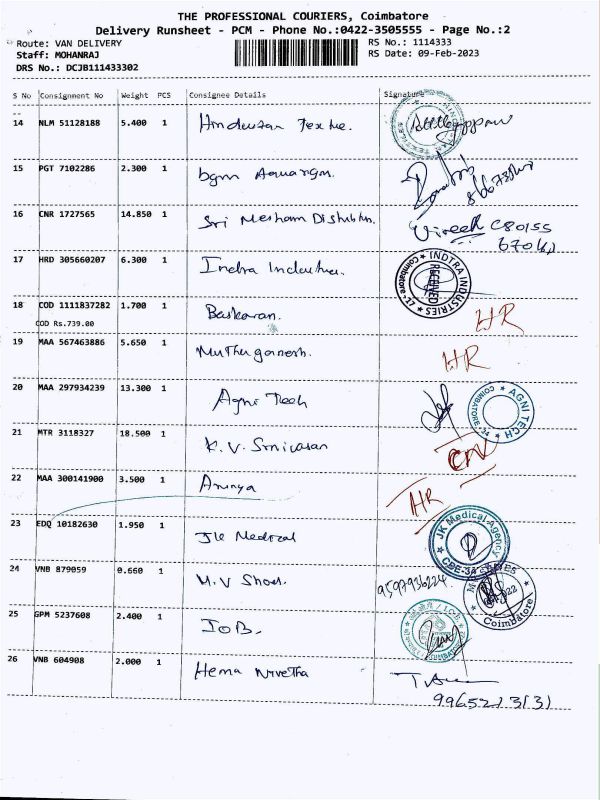 THE PROFESSIONAL COURIERS, Coimbatore
Delivery Runsheet - PCM - Phone No.:0422-3505555 - Page No.:2
Route: VAN DELIVERY RS No.: 1114333
Staff: MOHANRAJ RS Date: 09-Feb-2023
DRS No.: DCJB111433302
S No Consignment No Weight PCS Consignee Details Signature
14 NLM 51128188 5.400 1 Hindustan Textile.
15 PGT 7102286 2.300 1 bgm
16 CNR 1727565 14.850 1 Sri C80155
17 HRD 305660207 6.300 1 Indra Industries. INDTRA INDUSTRIES RECEIVED Coimbatore - 17
18 COD 1111837282 1.700 1 Baskaran. HR
COD Rs.739.00
19 MAA 567463886 5.650 1 Muthuganesh. HR
20 MAA 297934239 13.300 1 Agni Tech AGNI TECH COIMBATORE
21 MTR 3118327 18.500 1 K. V. Srinivasan
22 MAA 300141900 3.500 1 HR
23 EDQ 10182630 1.950 1 JK Medical JK Medical Agency CBE-3A
24 VNB 879059 0.660 1 M.V Shoes. 9597936224 Coimbatore
25 GPM 5237608 2.400 1 IOB.
26 VNB 604908 2.000 1 Hema Nivetha